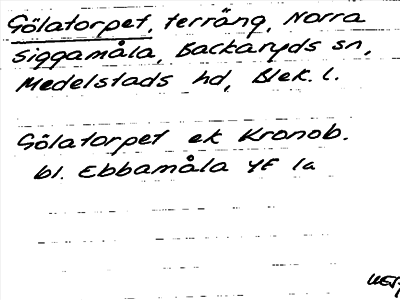 Gölatorpet, terräng, Norra
Siggamåla, Backaryds sn,
Medelstads hd, Blek. l.
Gölatorpet ek Kronob.
bl. Ebbamåla YF 1a